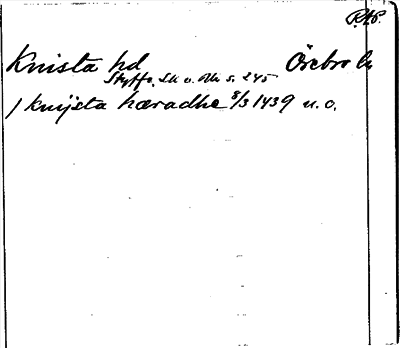 R.A.P.
Knista hd Örebro l.
Styffe, Sk u. Un s. 245
/ knijsta hæradhe 8/3 1439 u. o.